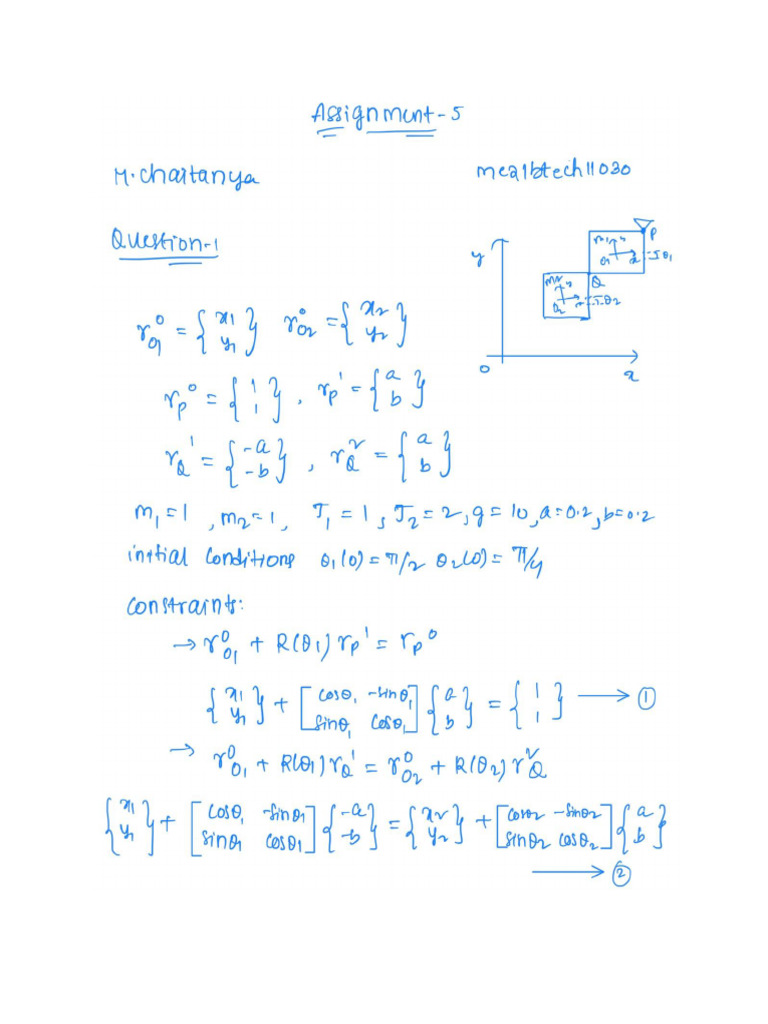 Assignment-5
M.chaitanya me21btech11030
Question-1
y
m1 y P
θ1 x θ1
m2 y Q
O2 x θ2
O x
r⁰_O1 = {x1 y1} r⁰_O2 = {x2 y2}
r_P⁰ = {1 1}, r_P¹ = {a b}
r_Q¹ = {-a -b}, r_Q² = {a b}
m1 = 1, m2 = 1, J1 = 1, J2 = 2, g = 10, a = 0.2, b = 0.2
initial conditions θ1(0) = π/2 θ2(0) = π/4
constraints:
→ r⁰_O1 + R(θ1) r_P¹ = r_P⁰
{x1 y1} + [cosθ1 -sinθ1 sinθ1 cosθ1] {a b} = {1 1} → ①
→ r⁰_O1 + R(θ1) r_Q¹ = r⁰_O2 + R(θ2) r²_Q
{x1 y1} + [cosθ1 -sinθ1 sinθ1 cosθ1] {-a -b} = {x2 y2} + [cosθ2 -sinθ2 sinθ2 cosθ2] {a b}
→ ②